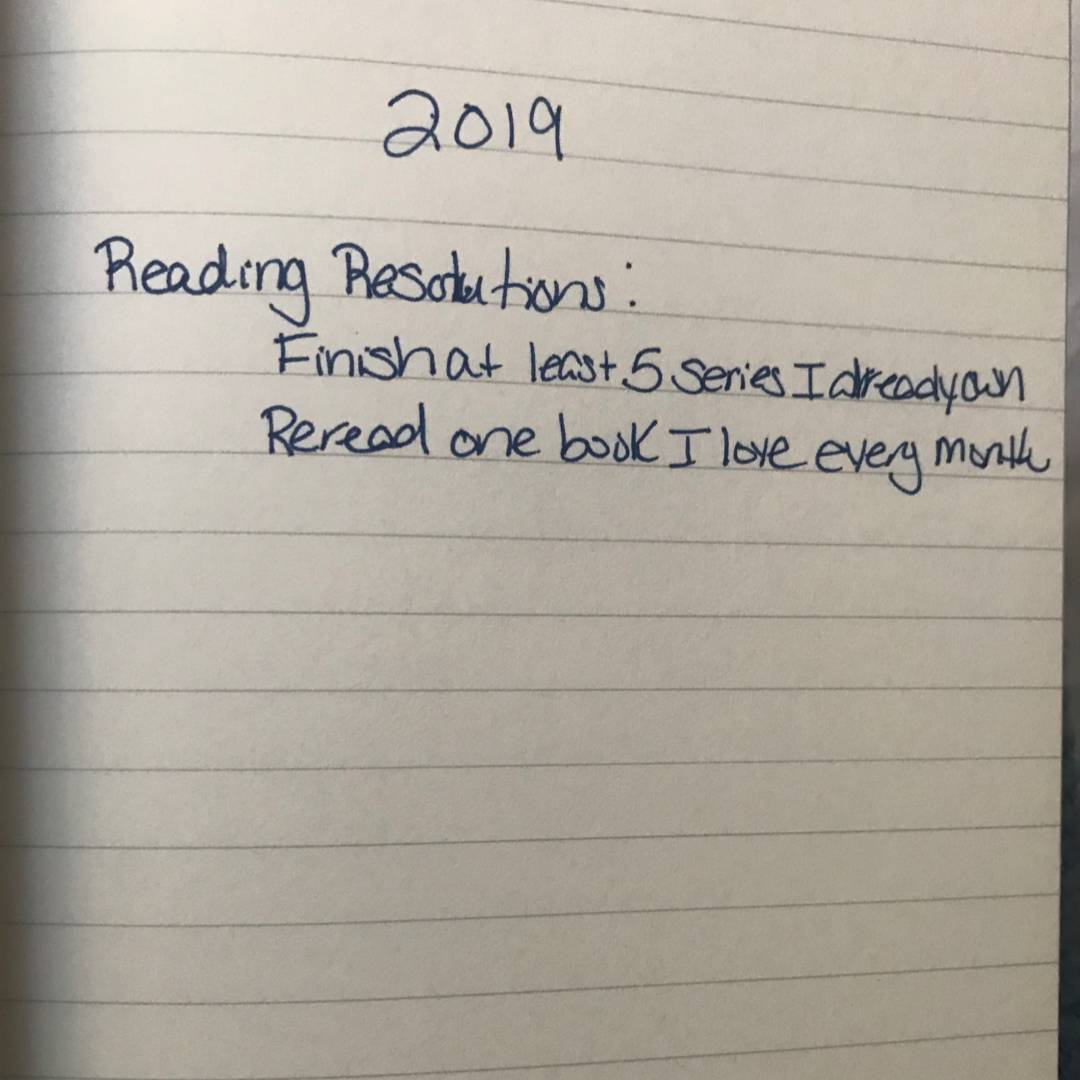 2019
Reading Resolutions:
Finish at least 5 series I already own
Reread one book I love every month